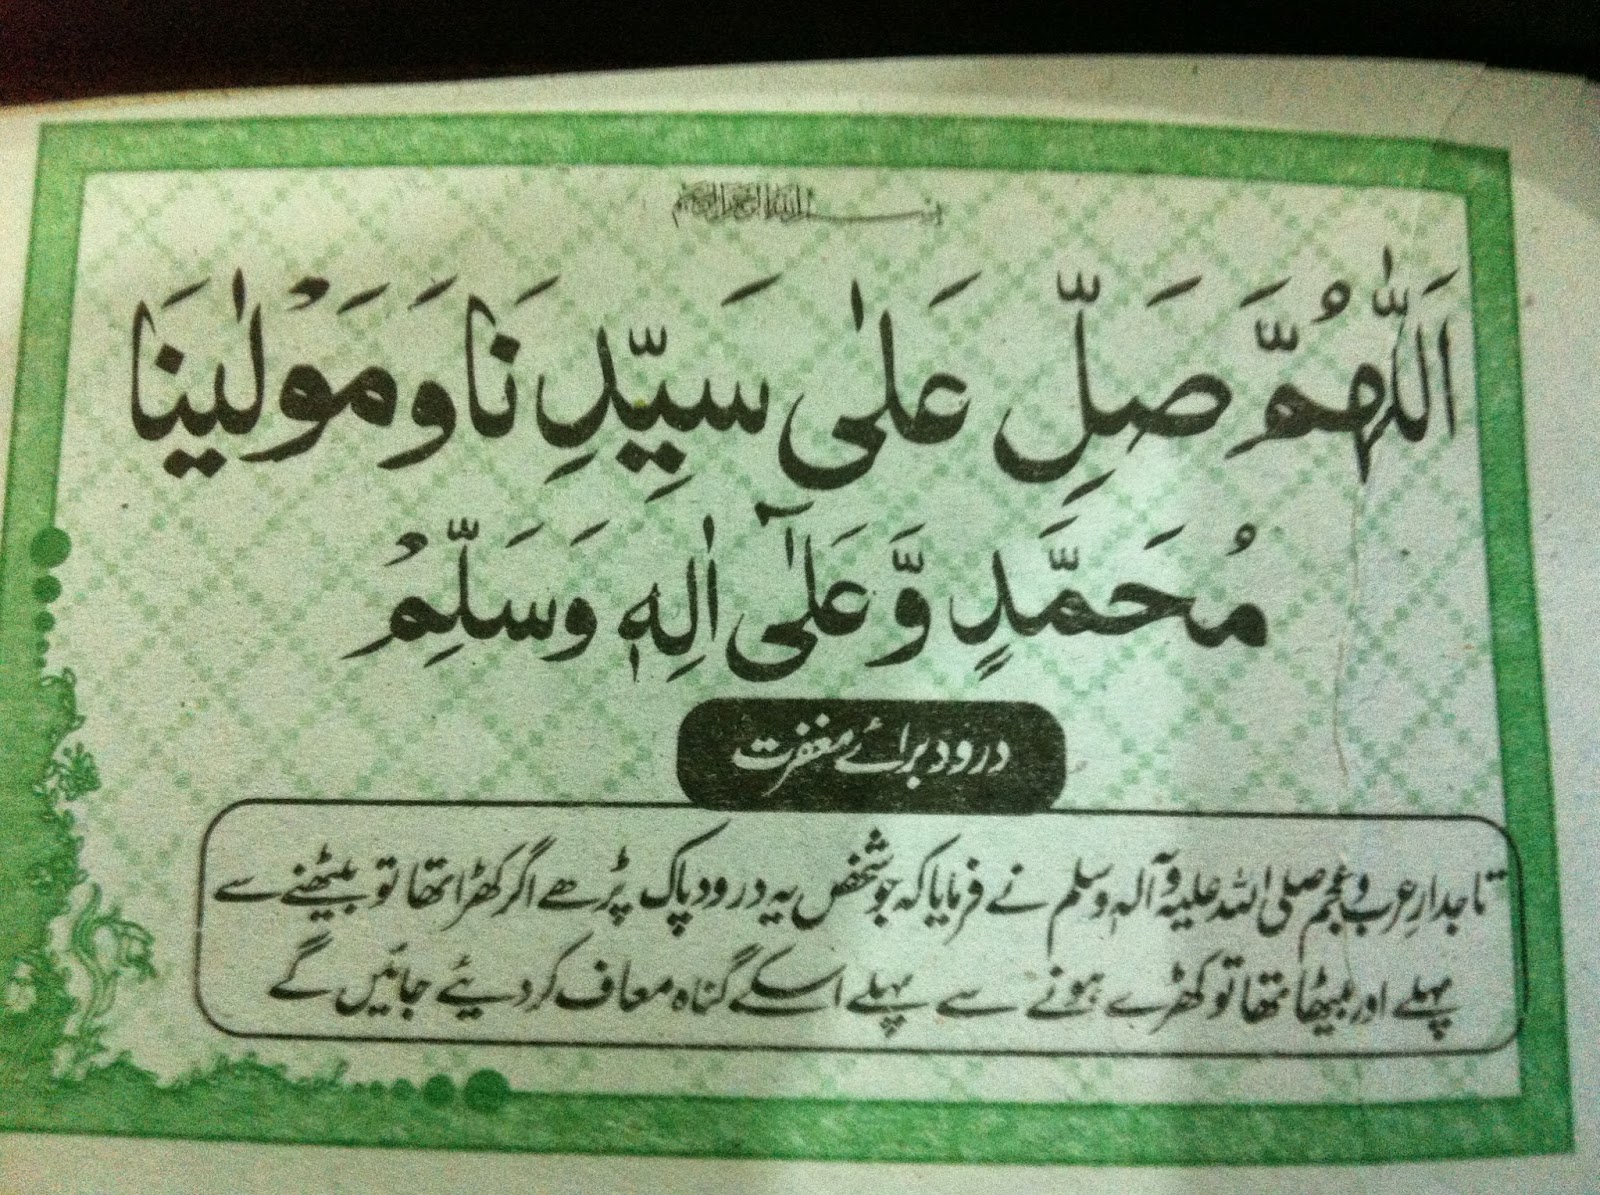 بسم الله الرحمن الرحيم
اَللّٰهُمَّ صَلِّ عَلٰى سَيِّدِنَا وَمَوْلٰينَا
مُحَمَّدٍ وَّعَلٰٓى اٰلِهٖ وَسَلِّمْ
درود برائے مغفرت
تاجدارِ عرب و عجم صلی اللہ علیہ وآلہ وسلم نے فرمایا کہ جو شخص یہ درود پاک پڑھے اگر کھڑا تھا تو بیٹھنے سے
پہلے اور بیٹھا تھا تو کھڑے ہونے سے پہلے اسکے گناہ معاف کر دیئے جائیں گے